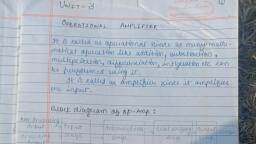 UNIT - 3
OPERATIONAL AMPLIFIER
It is called as operational since as many mathe-
matical operation like addition, substraction,
multiplication, differenciation, integration etc can
be performed using it.
It is called as amplifier since it amplifies
the input.
Block diagram of op-amp:
Input
Input